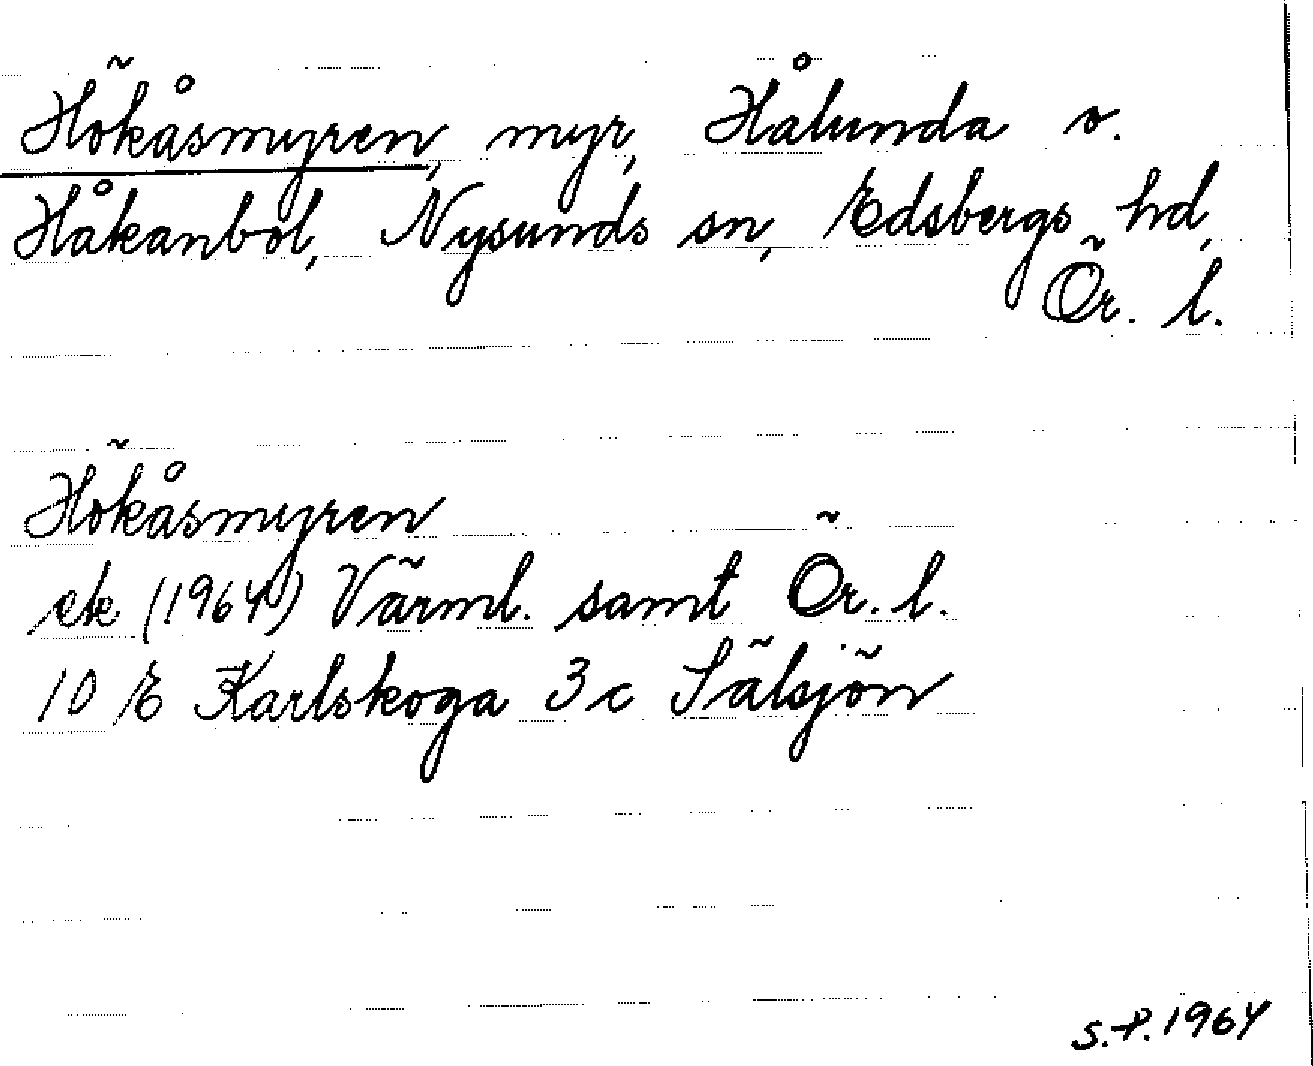 Hökåsmyren, myr, Hålunda o.
Håkanbol, Nysunds sn, Edsbergs hd,
Ör. l.
Hökåsmyren
ek (1964) Värml. samt Ör. l.
10 E Karlskoga 3 c Sälsjön
S.P. 1964